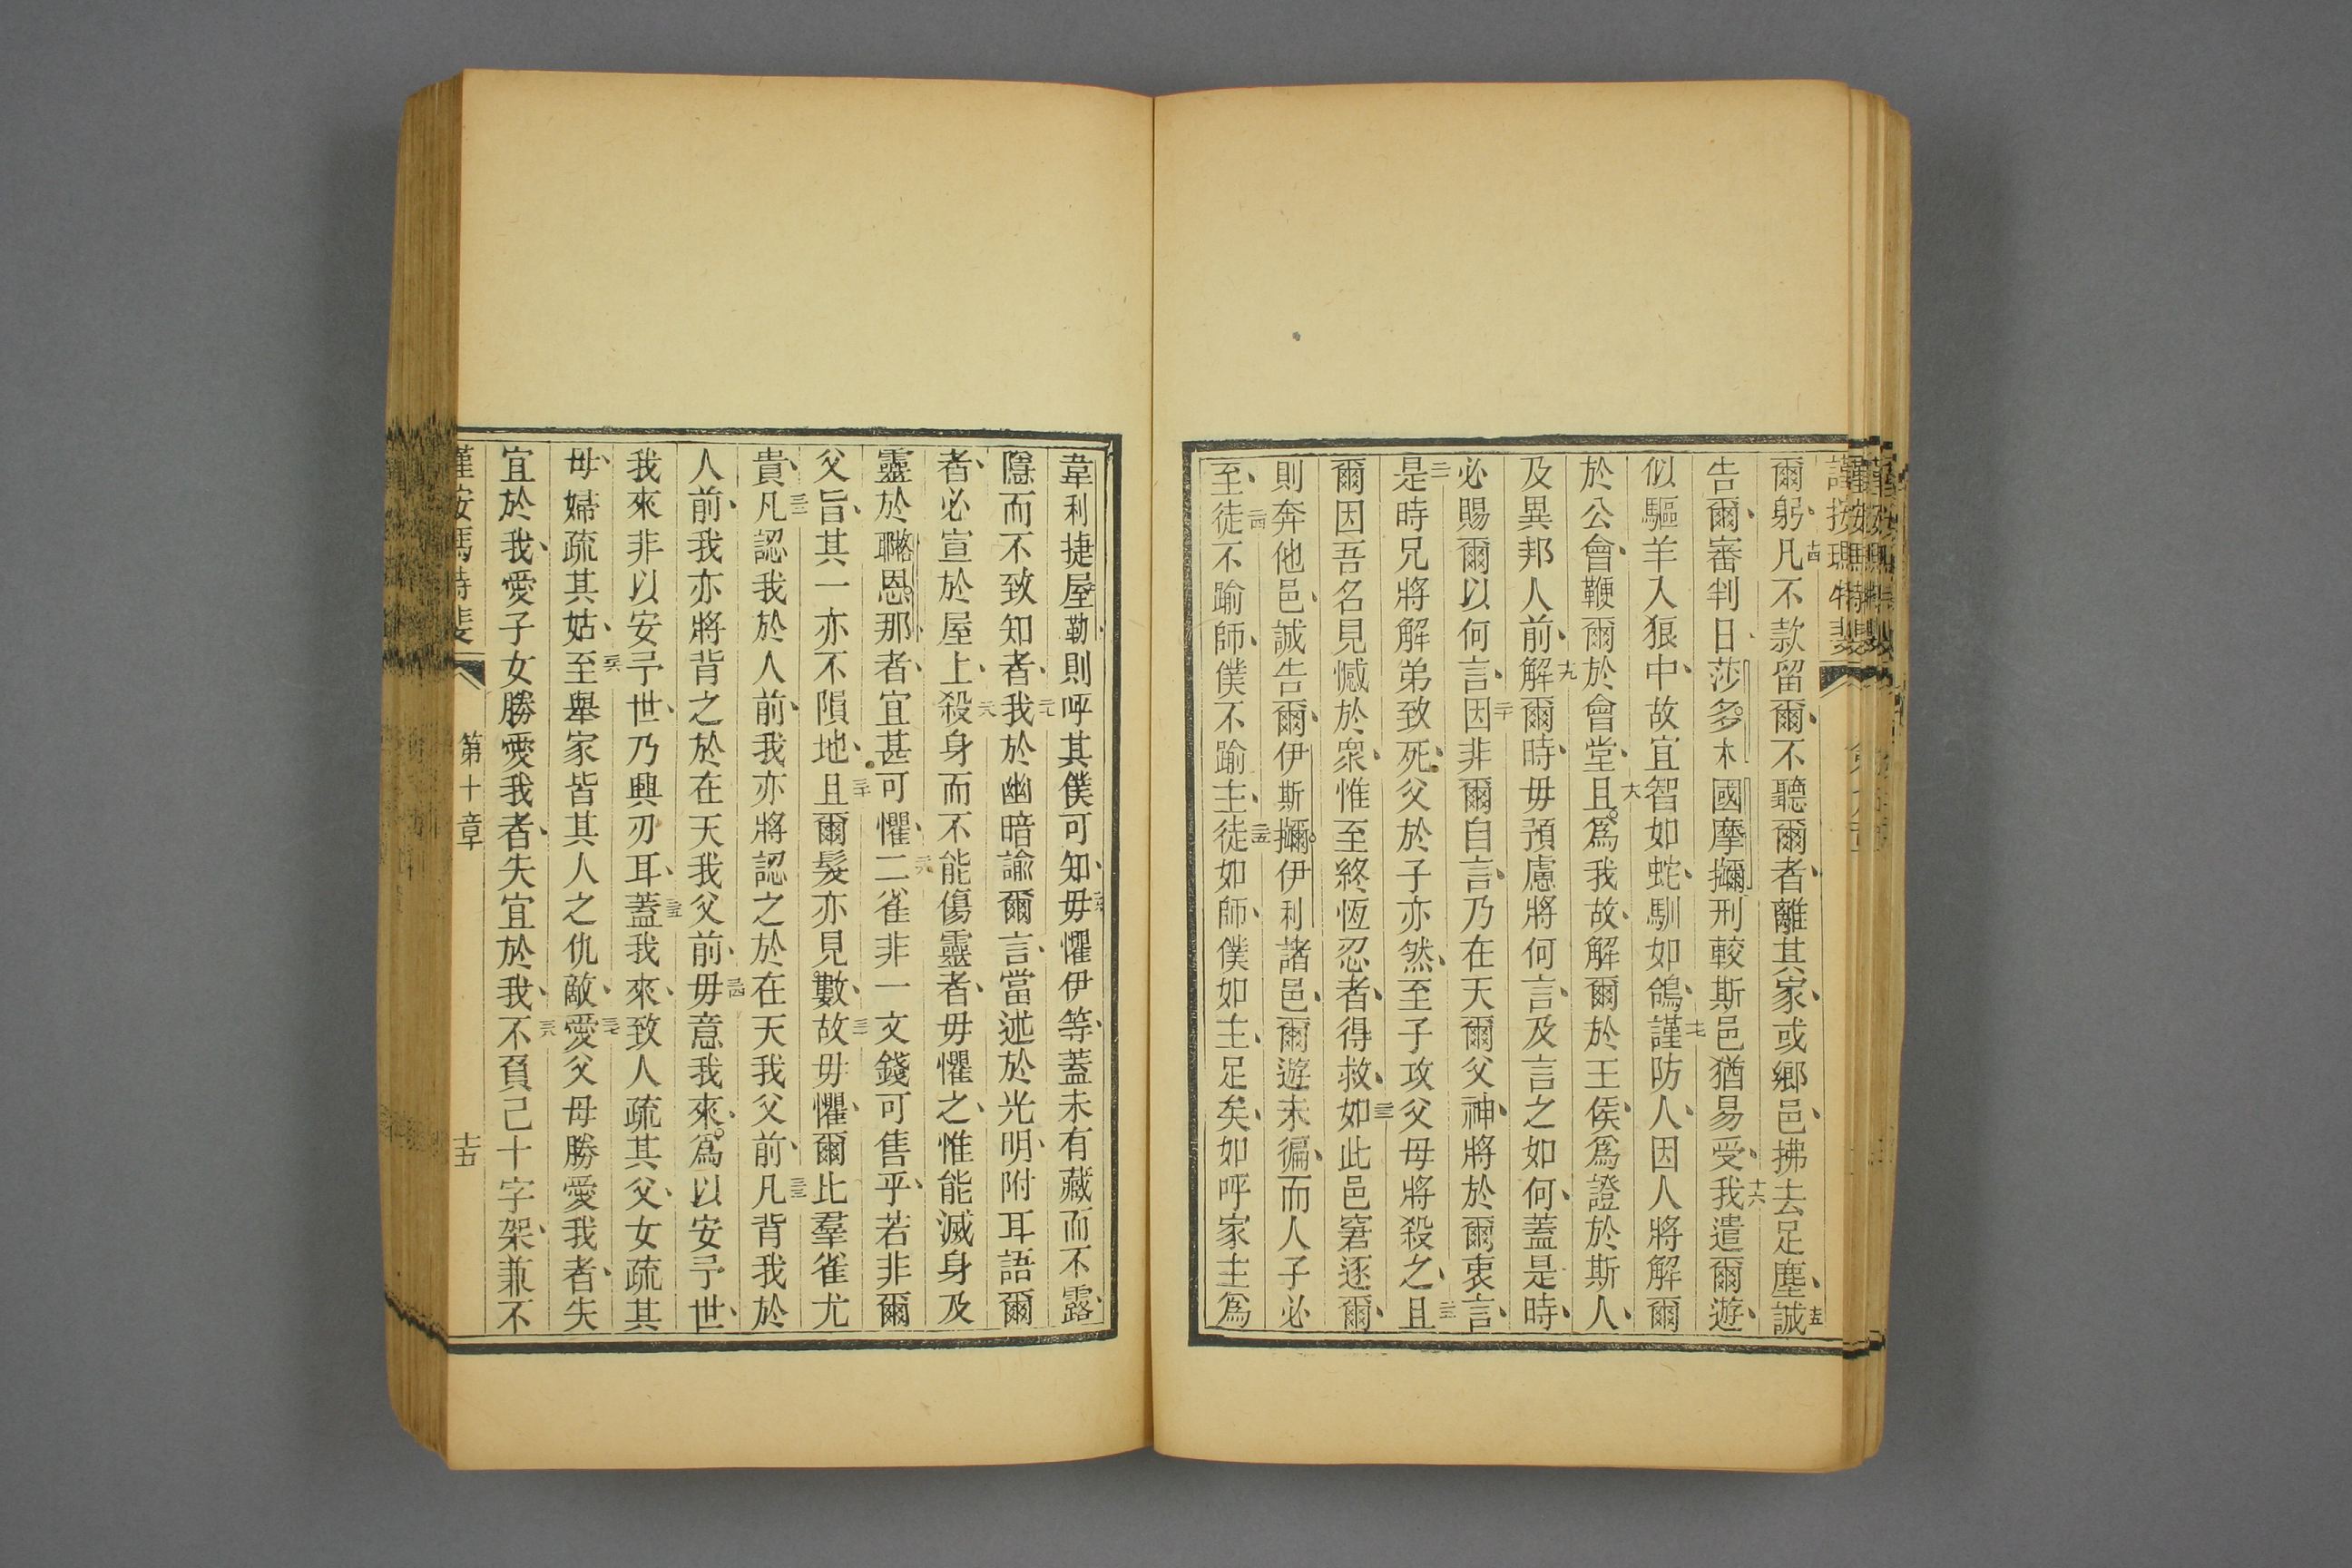 爾躬、凡十四不款留爾、不聽爾者、離其家、或鄉邑、拂去足塵、誠十五
告爾、審判日、莎多木國摩摛刑較斯邑猶易受、我十六遣爾遊、
似驅羊入狼中、故宜智如蛇、馴如鴿、謹十七防人、因人將解爾
於公會、鞭爾於會堂、且十八為我故、解爾於王侯、為證於斯人、
及異邦人前、解十九爾時、毋預慮將何言、及言之如何、蓋是時、
必賜爾以何言、因二十非爾自言、乃在天爾父神、將於爾衷言、
是時兄將解弟致死、父於子亦然、至子攻父母將殺之、且
爾因吾名見憾於衆、惟至終恆忍者、得救、如此邑窘逐爾、
則奔他邑、誠告爾、伊斯攡伊利諸邑、爾遊未徧、而人子必
至、徒二四不踰師、僕不踰主、徒二五如師、僕如主、足矣、如呼家主為
韋利捷屋勒、則呼其僕可知、毋二六懼伊等、蓋未有藏而不露、
隱而不致知者、我二七於幽暗諭爾言、當述於光明、附耳語爾
者、必宣於屋上、殺二八身而不能傷靈者、毋懼之、惟能滅身及
靈於𦗒恩那者、宜甚可懼、二二九雀非一文錢可售乎、若非爾
父旨、其一亦不隕地、且三十爾髮亦見數、故三一毋懼、爾比羣雀尤
貴、凡三二認我於人前、我亦將認之於在天我父前、凡三三背我於
人前、我亦將背之於在天我父前、毋三四意我來、為以安予世、
我來非以安予世、乃興刃耳、蓋三五我來、致人疏其父、女疏其
母、婦疏其姑、至三六舉家皆其人之仇敵、愛三七父母勝愛我者、失
宜於我、愛子女勝愛我者、失宜於我、不三八負己十字架、兼不
第十章
十五